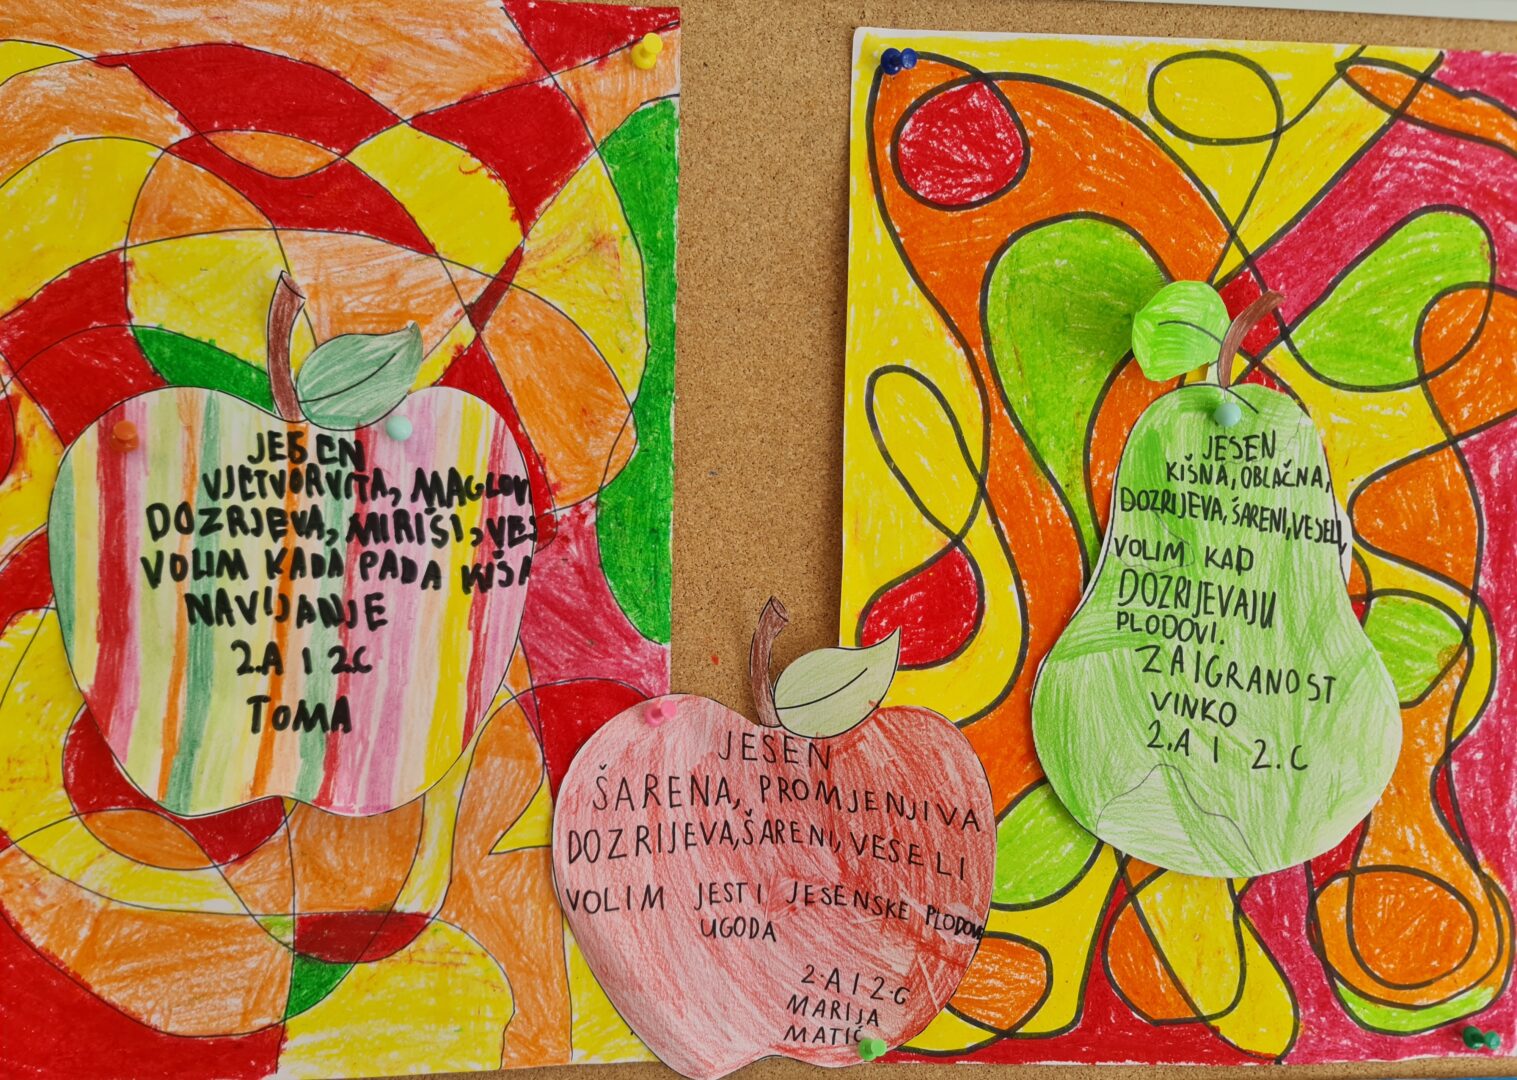 JESEN
VJETVORVITA, MAGLOV
DOZRJEVA, MIRIŠI, VES
VOLIM KADA PADA KIŠA
NAVIJANJE
2.A I 2.C
TOMA
JESEN
ŠARENA, PROMJENJIVA
DOZRIJEVA, ŠARENI, VESELI
VOLIM JESTI JESENSKE PLODOVE
UGODA
2.A I 2.C
MARIJA
MATIĆ
JESEN
KIŠNA, OBLAČNA,
DOZRIJEVA, ŠARENI, VESELI,
VOLIM KAD
DOZRIJEVAJU
PLODOVI.
ZAIGRANOST
VINKO
2.A I 2.C